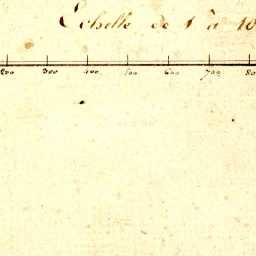 Echelle de 1 à 10
200 300 400 500 600 700 80